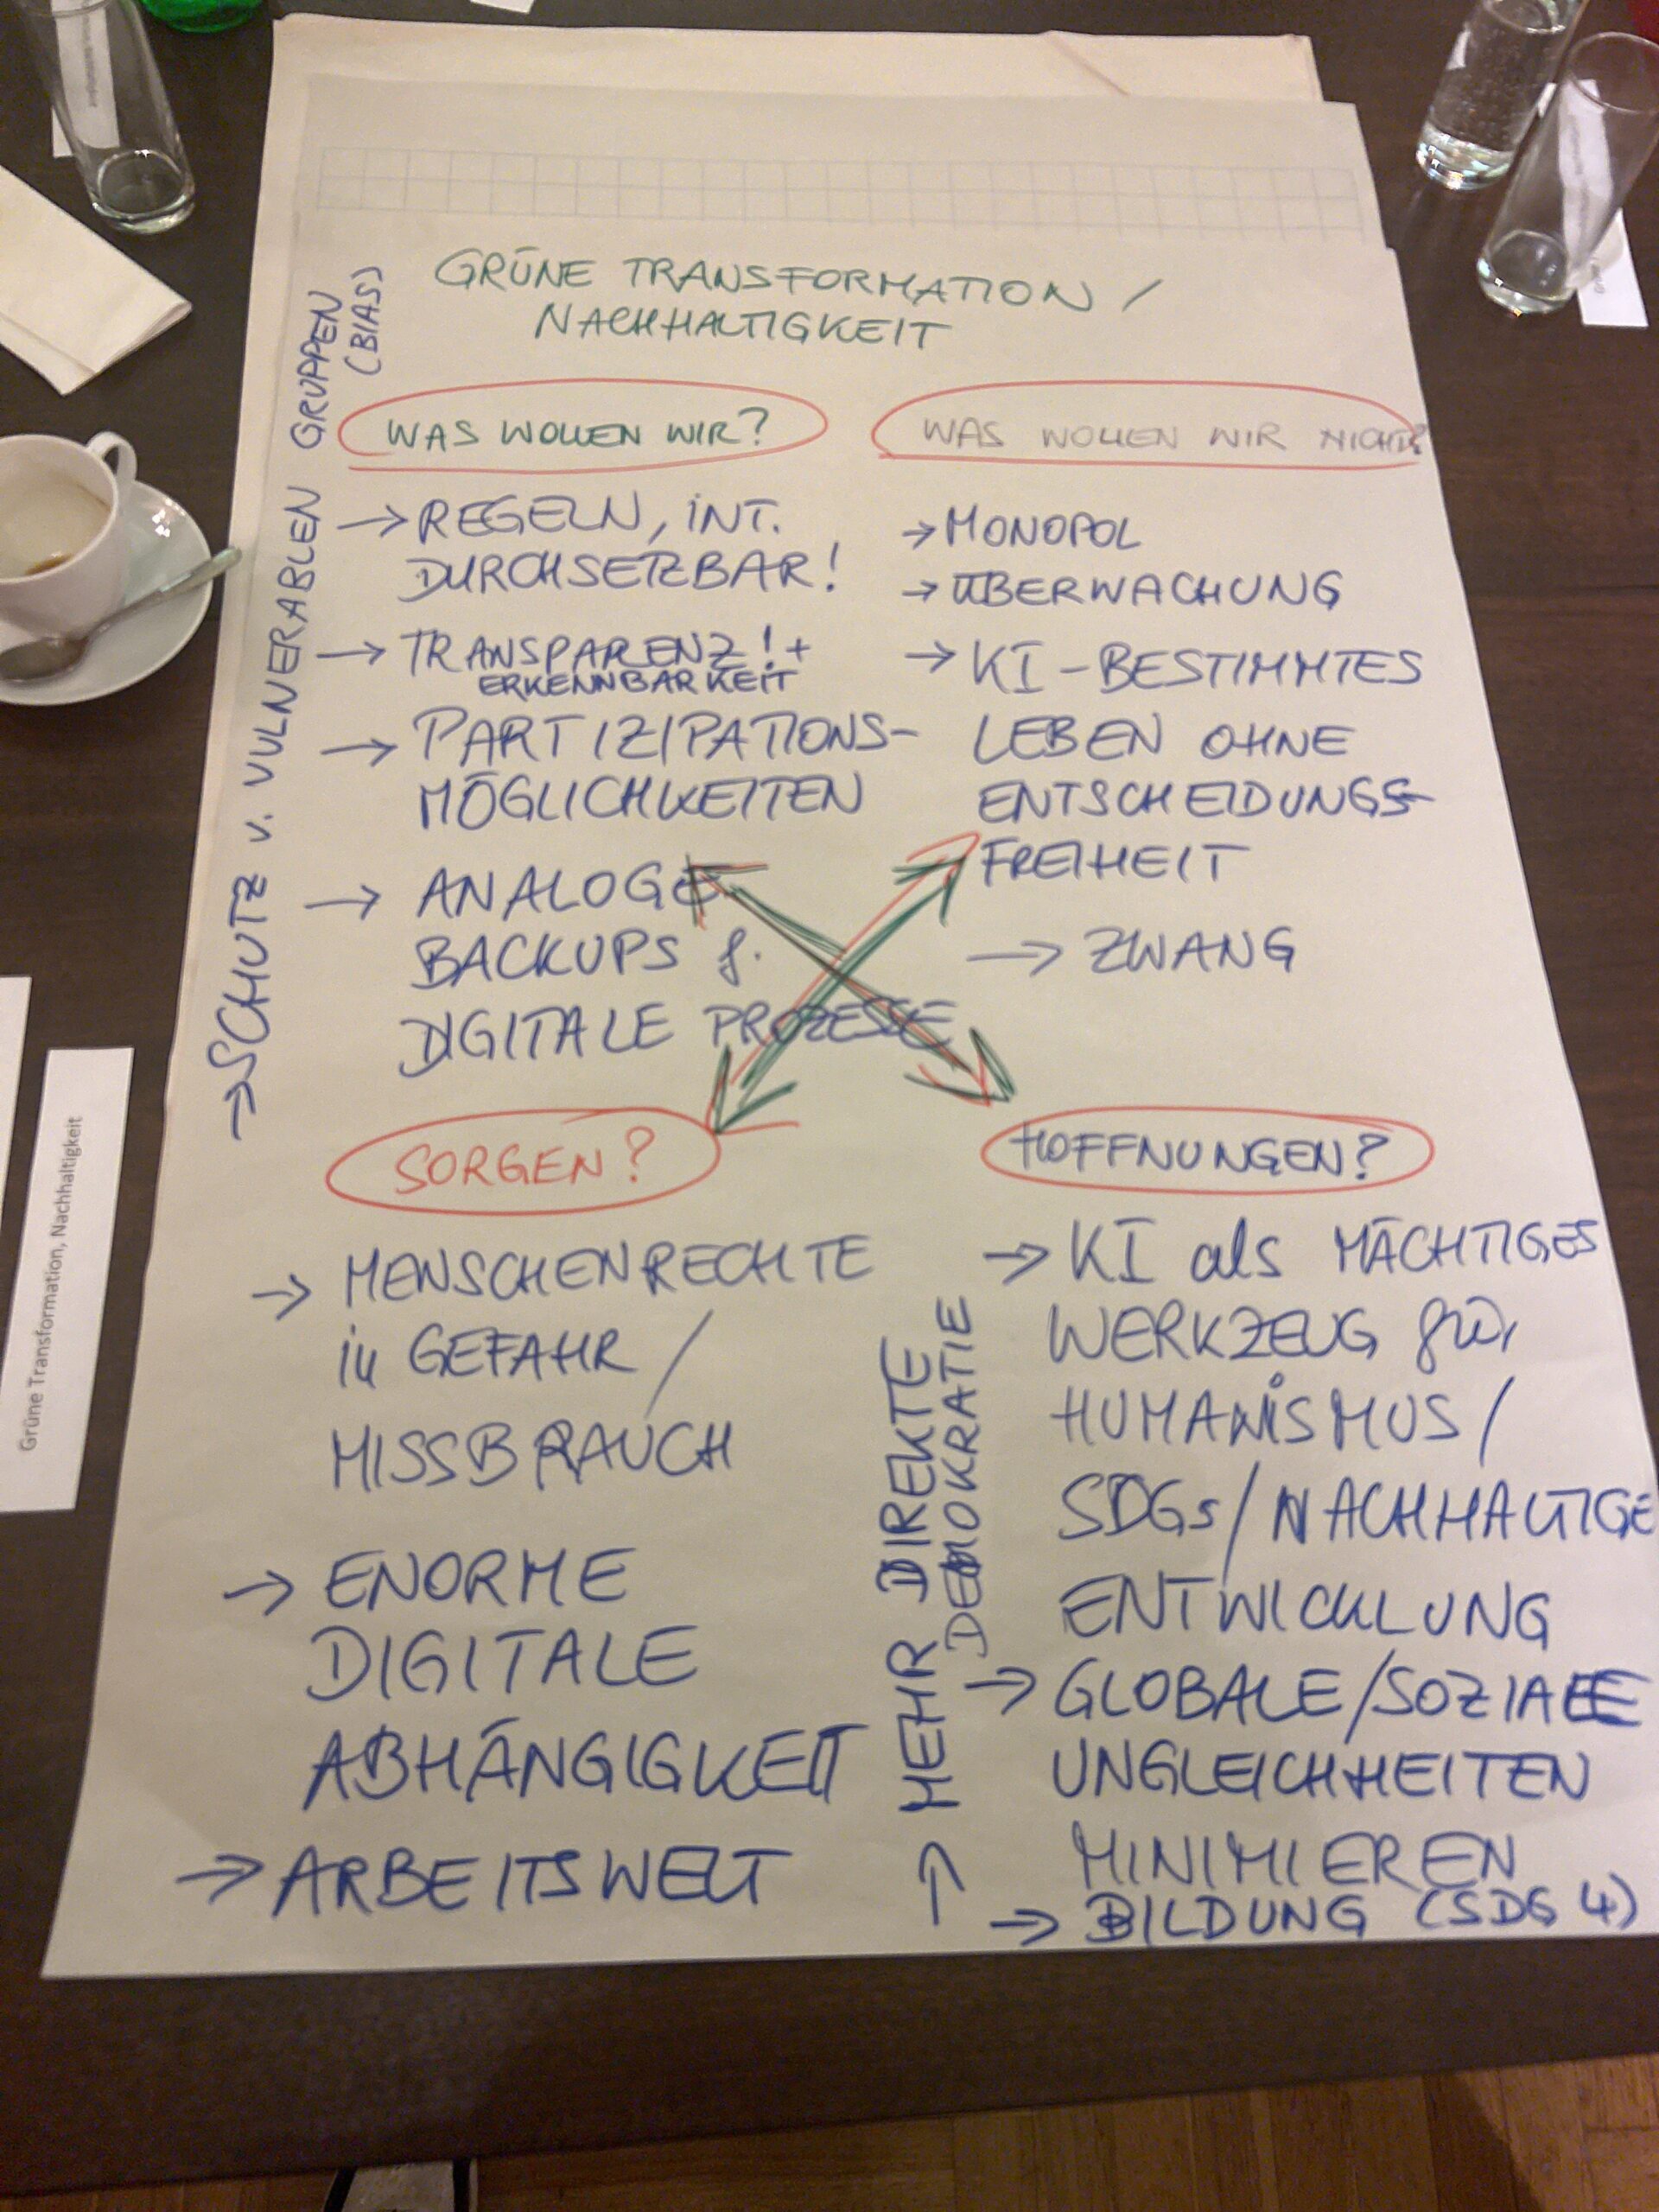 GRÜNE TRANSFORMATION /
NACHHALTIGKEIT
WAS WOLLEN WIR?
→ REGELN, INT.
DURCHSETZBAR!
→ TRANSPARENZ! +
ERKENNBARKEIT
→ PARTIZIPATIONS-
MÖGLICHKEITEN
→ ANALOGE
BACKUPS f.
DIGITALE PROZESSE
→ SCHUTZ v. VULNERABLEN GRUPPEN
(BIAS)
WAS WOLLEN WIR NICHT?
→ MONOPOL
→ ÜBERWACHUNG
→ KI-BESTIMMTES
LEBEN OHNE
ENTSCHEIDUNGS-
FREIHEIT
→ ZWANG
SORGEN?
→ MENSCHENRECHTE
in GEFAHR /
MISSBRAUCH
→ ENORME
DIGITALE
ABHÄNGIGKEIT
→ ARBEITSWELT
HOFFNUNGEN?
→ KI als MÄCHTIGES
WERKZEUG für
HUMANISMUS /
SDGs / NACHHALTIGE
ENTWICKLUNG
→ GLOBALE/SOZIALE
UNGLEICHHEITEN
MINIMIEREN
→ BILDUNG (SDG 4)
→ MEHR DIREKTE
DEMOKRATIE
Grüne Transformation, Nachhaltigkeit